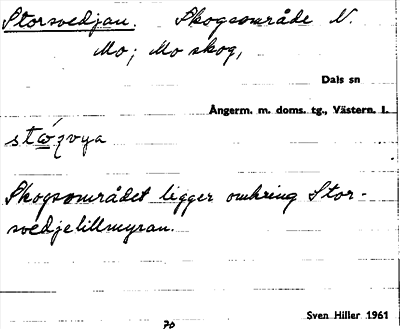 Storsvedjan. Skogsområde N.
Mo; Mo skog,
Dals sn
Ångerm. m. doms. tg., Västern. l.
Skogsområdet ligger omkring Stor-
svedjelillmyran.
70
Sven Hiller 1961